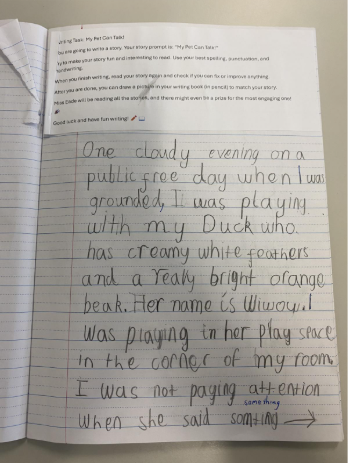 Writing Task: My Pet Can Talk!
You are going to write a story. Your story prompt is: "My Pet Can Talk!"
Try to make your story fun and interesting to read. Use your best spelling, punctuation, and
handwriting.
When you finish writing, read your story again and check if you can fix or improve anything.
After you are done, you can draw a picture in your writing book (in pencil) to match your story.
will be reading all the stories, and there might even be a prize for the most engaging one!
Good luck and have fun writing!
One cloudy evening on a
public free day when I was
grounded, I was playing
with my Duck who.
has creamy white feathers
and a realy bright orange
beak. Her name is Wiwow. I
was playing in her play space
in the corner of my room.
I was not paying attention
something
when she said somting →